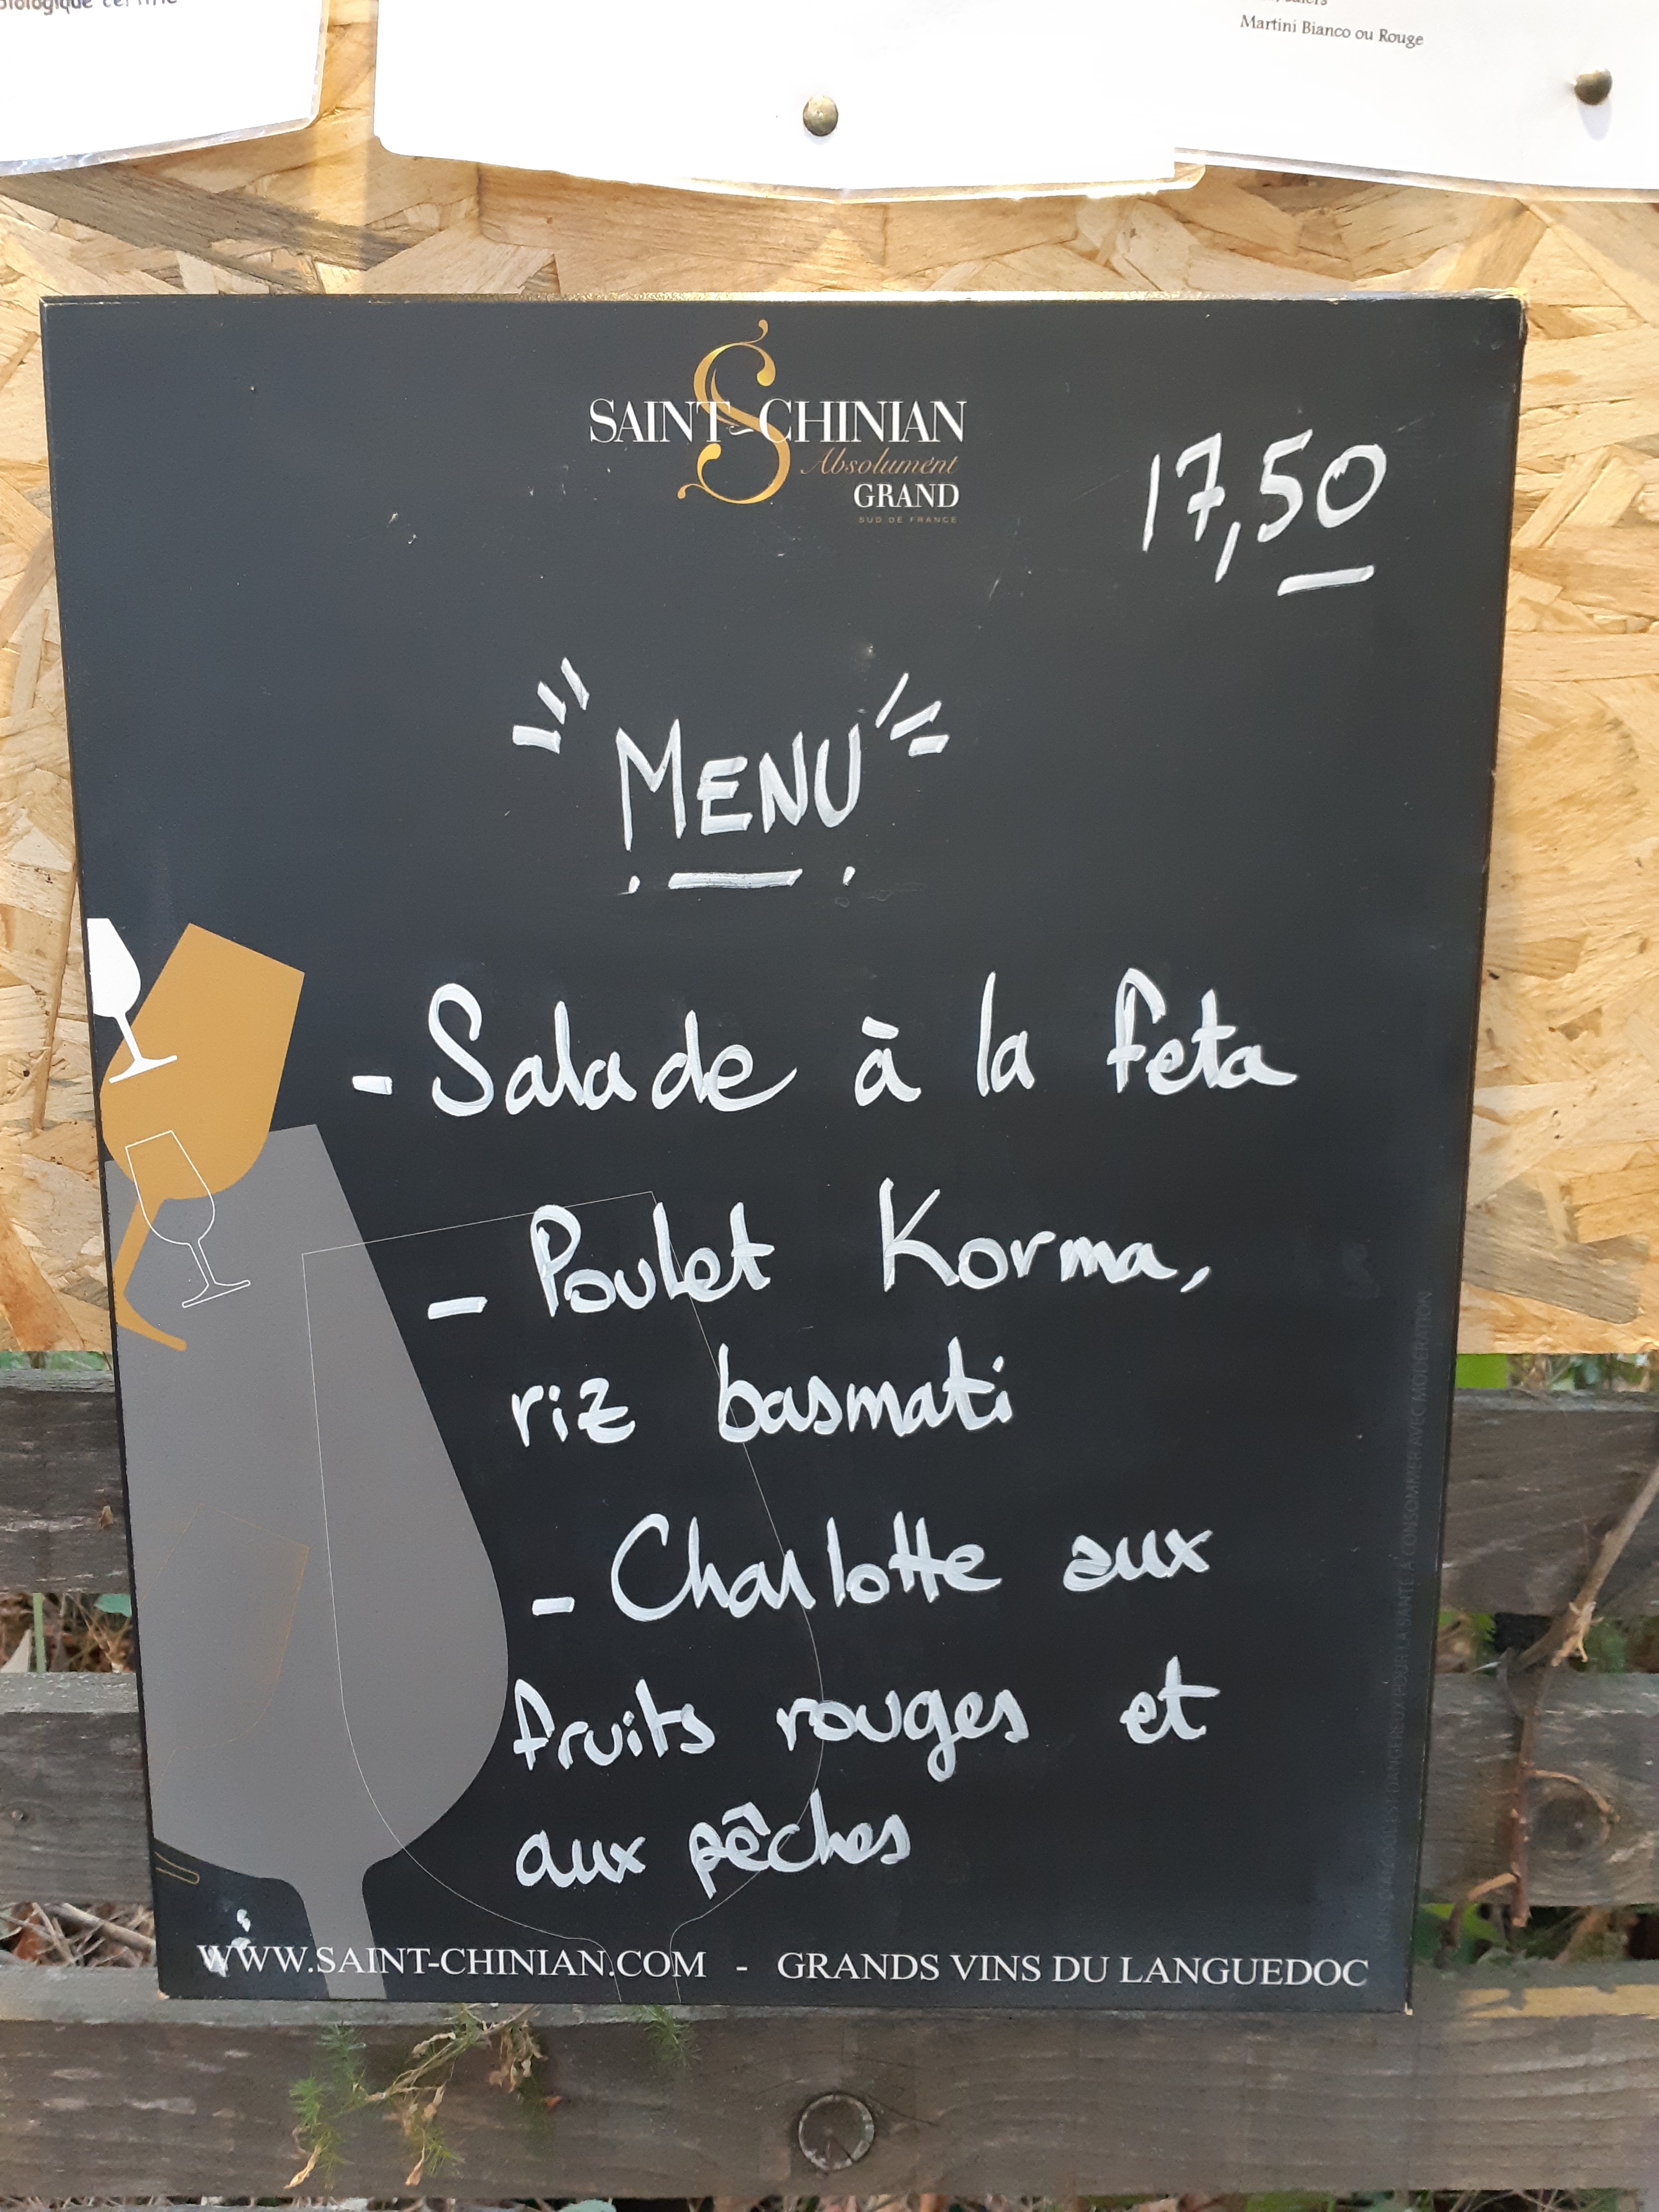 biologique certifié
Martini Bianco ou Rouge
SAINT-CHINIAN
Absolument
GRAND
SUD DE FRANCE
17,50
MENU
- Salade à la feta
- Poulet Korma,
riz basmati
- Charlotte aux
fruits rouges et
aux pêches
WWW.SAINT-CHINIAN.COM - GRANDS VINS DU LANGUEDOC
L'ABUS D'ALCOOL EST DANGEREUX POUR LA SANTÉ, À CONSOMMER AVEC MODÉRATION